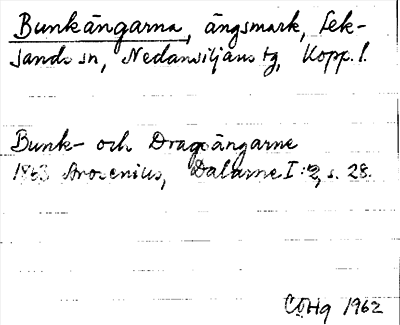 Bunkängarna, ängsmark, Lek-
sands sn, Nedansiljans tg, Kopp. l.
Bunk- och Dragsängarne
1863 Arosenius, Dalarne I:2, s. 28.
CÖHg 1962